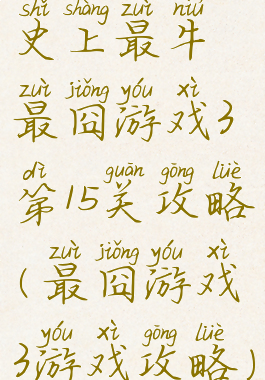 shǐ shàng zuì niú
史上最牛
zuì jiǒng yóu xì
最囧游戏3
dì guān gōng lüè
第15关攻略
zuì jiǒng yóu xì
(最囧游戏
yóu xì gōng lüè
3游戏攻略)